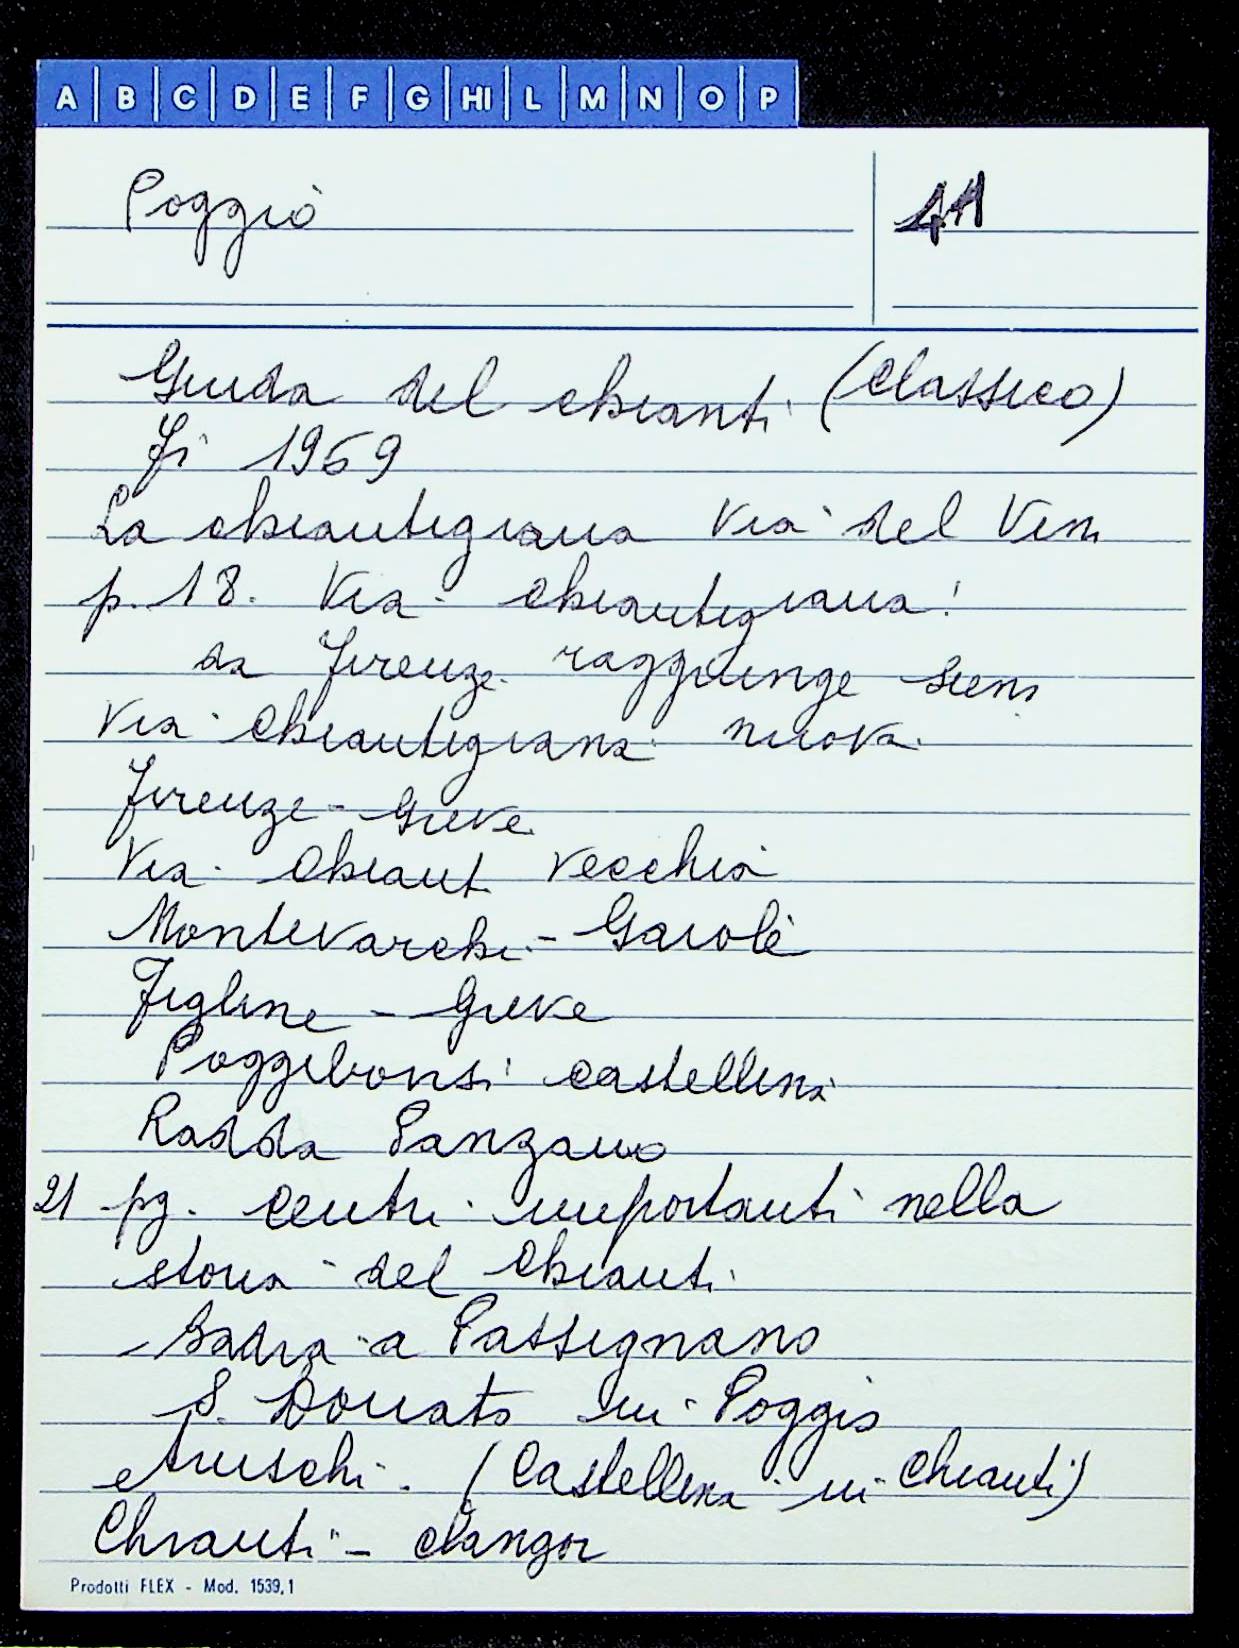 A B C D E F G HI L M N O P
Poggio
Guida del Chianti (Classico)
Fi 1969
La chiantigiana Via del Vin
p. 18. Via Chiantigiana!
da Firenze raggiunge Siena
Via Chiantigiana nuova
Firenze - Greve
Via Chiant. vecchia
Montevarchi - Gaiole
Figline - Greve
Poggibonsi Castellina
Radda Panzano
21 pg. centri importanti nella
storia del Chianti
- Badia a Passignano
S. Donato in Poggio
etruschi. (Castellina in Chianti)
Chianti - clangor
Prodotti FLEX - Mod. 1539,1